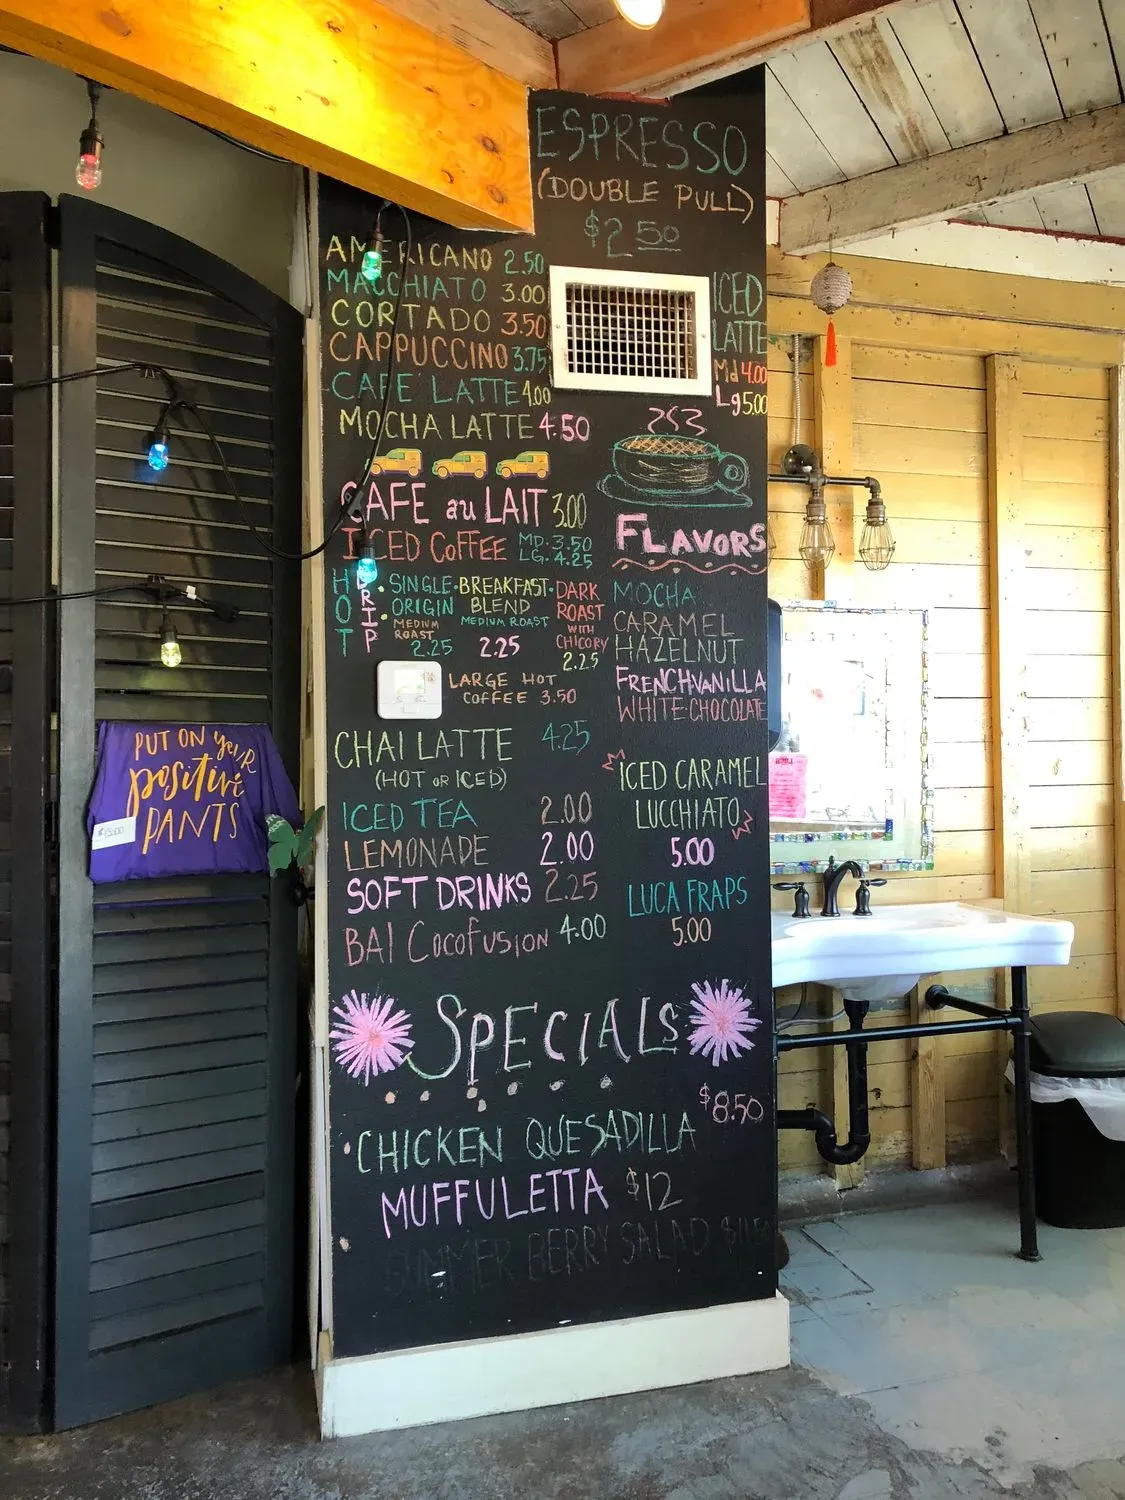 ESPRESSO
(DOUBLE PULL)
$2.50
AMERICANO 2.50
MACCHIATO 3.00
CORTADO 3.50
CAPPUCCINO 3.75
CAFE LATTE 4.00
MOCHA LATTE 4.50
ICED
LATTE
Md 4.00
Lg 5.00
CAFE au LAIT 3.00
ICED COFFEE MD. 3.50
LG. 4.25
HOT DRIP
SINGLE ORIGIN
MEDIUM ROAST
2.25
BREAKFAST BLEND
MEDIUM ROAST
2.25
DARK ROAST
WITH CHICORY
2.25
LARGE HOT
COFFEE 3.50
CHAI LATTE 4.25
(HOT OR ICED)
ICED TEA 2.00
LEMONADE 2.00
SOFT DRINKS 2.25
BAI COCOFUSION 4.00
FLAVORS
MOCHA
CARAMEL
HAZELNUT
FRENCH VANILLA
WHITE-CHOCOLATE
ICED CARAMEL
LUCCHIATO
5.00
LUCA FRAPS
5.00
SPECIALS
CHICKEN QUESADILLA $8.50
MUFFULETTA $12
SUMMER BERRY SALAD
PUT ON your
positive
PANTS